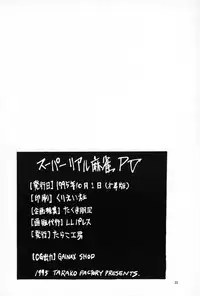 スーパーリアル麻雀。PV
【発行日】1995年10月1日
【印刷】くりえい社
【企画編集】たくま朋正
【画版代行】LLパレス
【発行】たらこ工房
【CG出力】GAINAX SHOP
1995 TARAKO FACTORY PRESENTS.